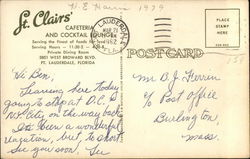 H. E. Harris 1979
St. Clairs'
CAFETERIA
AND COCKTAIL LOUNGE
Serving the Finest of Foods for
Serving Hours - 11:30-2 - 4:30-8
Private Dining Room
WEST BROWARD BLVD.
FT. LAUDERDALE, FLORIDA
LAUDERDALE
MAR 21
PLACE
STAMP
HERE
POSTCARD
Hi Ben,
Leaving here today
going to stop at D.C. &
NY City on the way back
been a wonderful
vacation, but to short
See you soon.
Mr B. J. Ferrin
c/o Post Office
Burlington,
Mass.